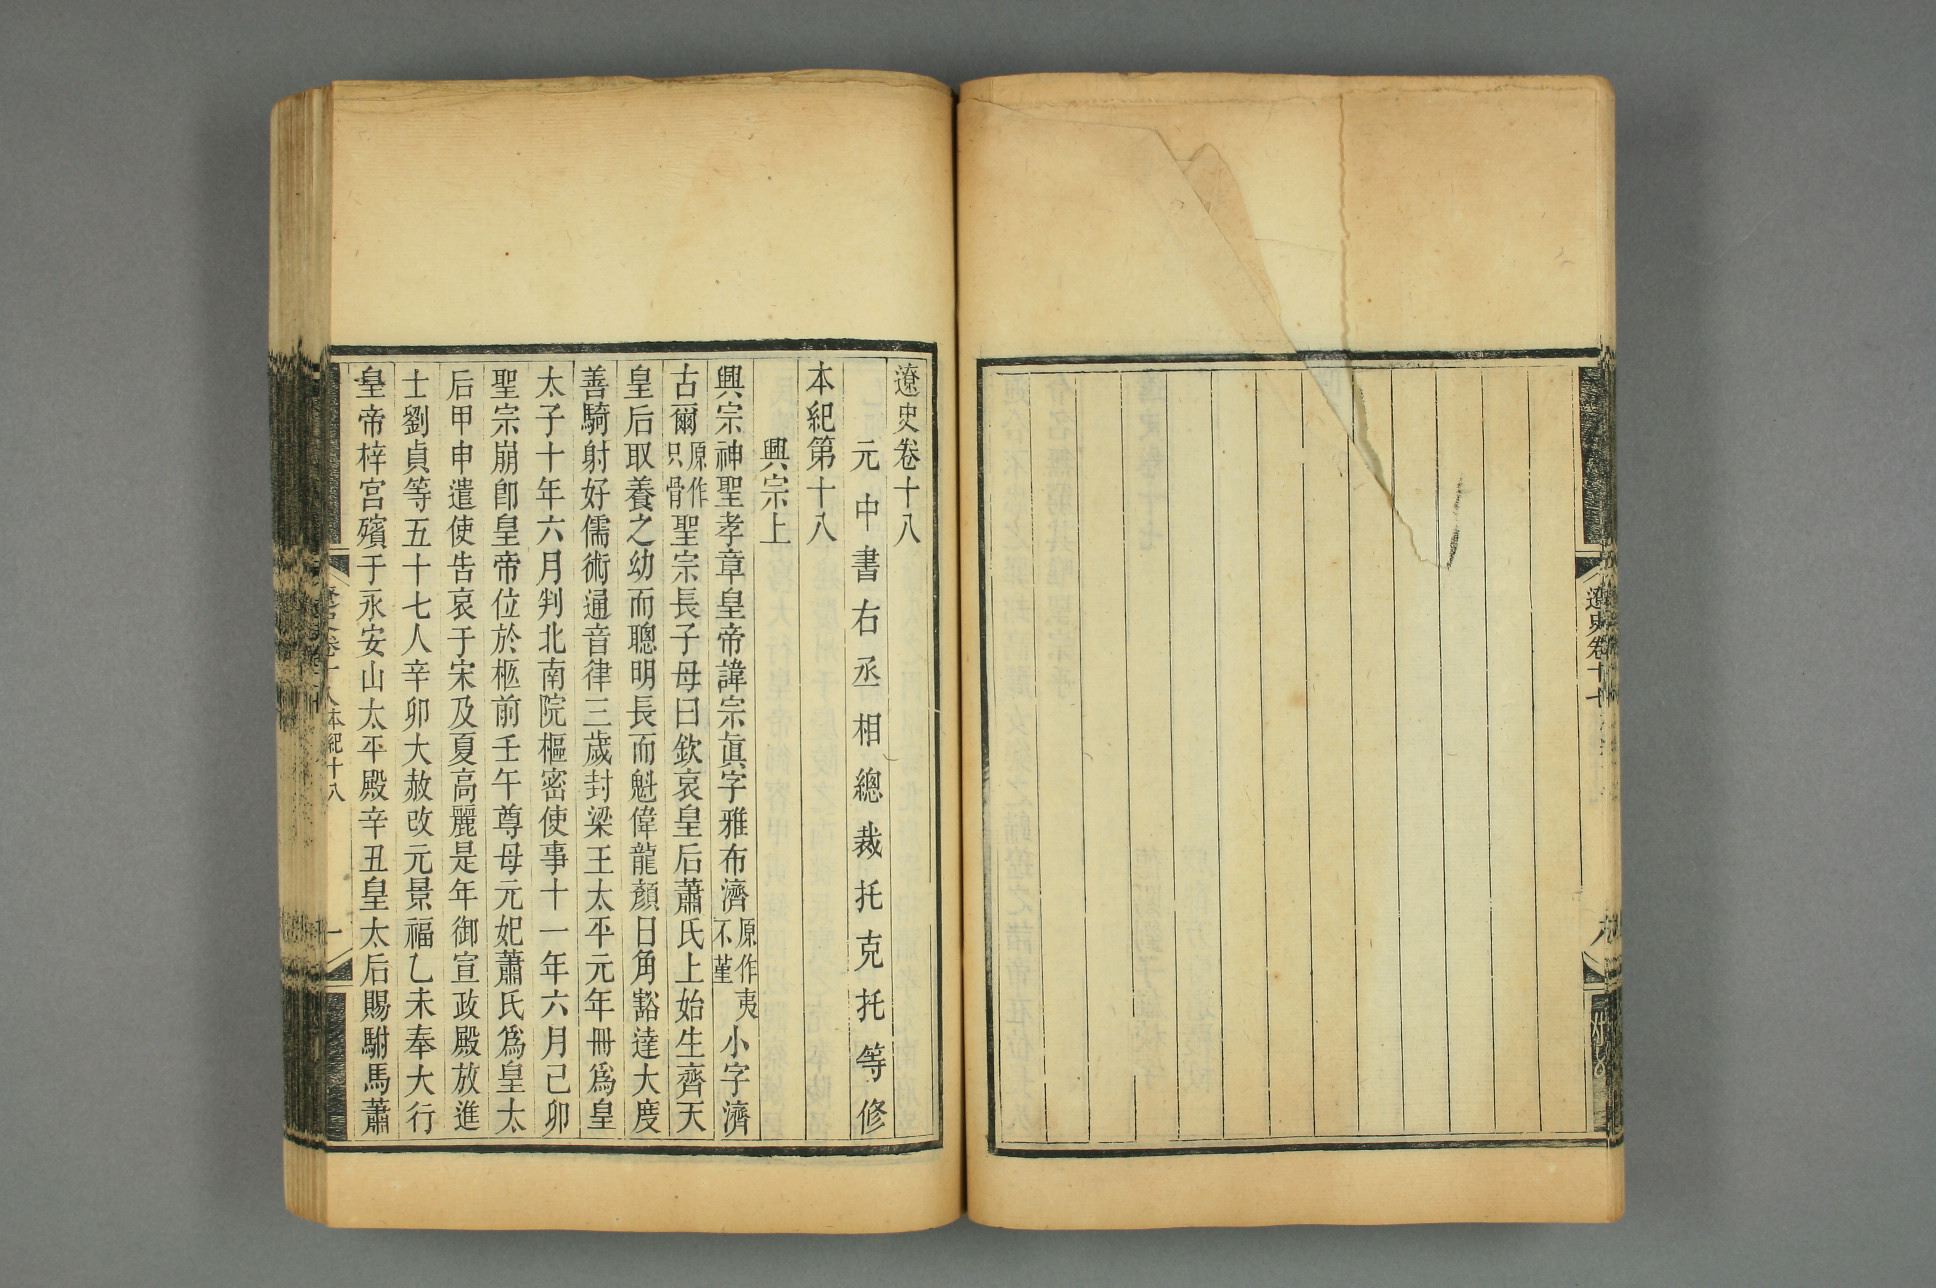 遼史卷十七
遼史卷十八
元中書右丞相總裁托克托等修
本紀第十八
興宗上
興宗神聖孝章皇帝諱宗眞字雅布濟原作夷不堇小字濟
古爾原作只骨聖宗長子母曰欽哀皇后蕭氏上始生齊天
皇后取養之幼而聰明長而魁偉龍顏日角豁達大度
善騎射好儒術通音律三歲封梁王太平元年冊爲皇
太子十年六月判北南院樞密使事十一年六月己卯
聖宗崩卽皇帝位於柩前壬午尊母元妃蕭氏爲皇太
后甲申遣使告哀于宋及夏高麗是年御宣政殿放進
士劉貞等五十七人辛卯大赦改元景福乙未奉大行
皇帝梓宮殯于永安山太平殿辛丑皇太后賜駙馬蕭
遼史卷十八 本紀十八 一